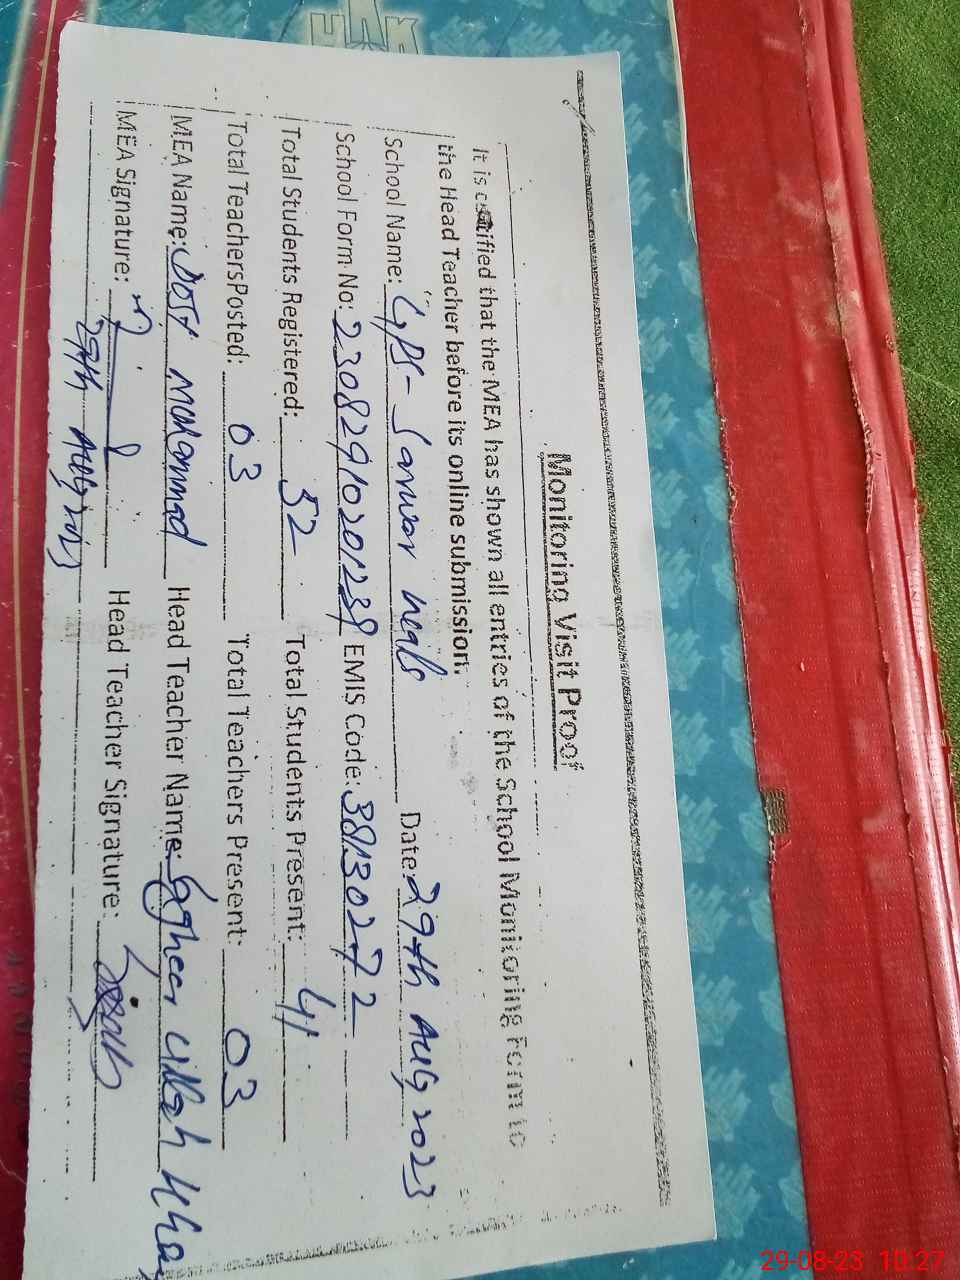 Monitoring Visit Proof
It is certified that the MEA has shown all entries of the School Monitoring Form to
the Head Teacher before its online submission.
School Name: GPS- Sarwar Date: 29th Aug 2023
School Form No: 2308291020 EMIS Code: 38130272
Total Students Registered: 52 Total Students Present: 41
Total TeachersPosted: 03 Total Teachers Present: 03
MEA Name: Dost Mohammad Head Teacher Name: ullah Kha
MEA Signature: Head Teacher Signature:
29th Aug 2023
29-08-23 10:27